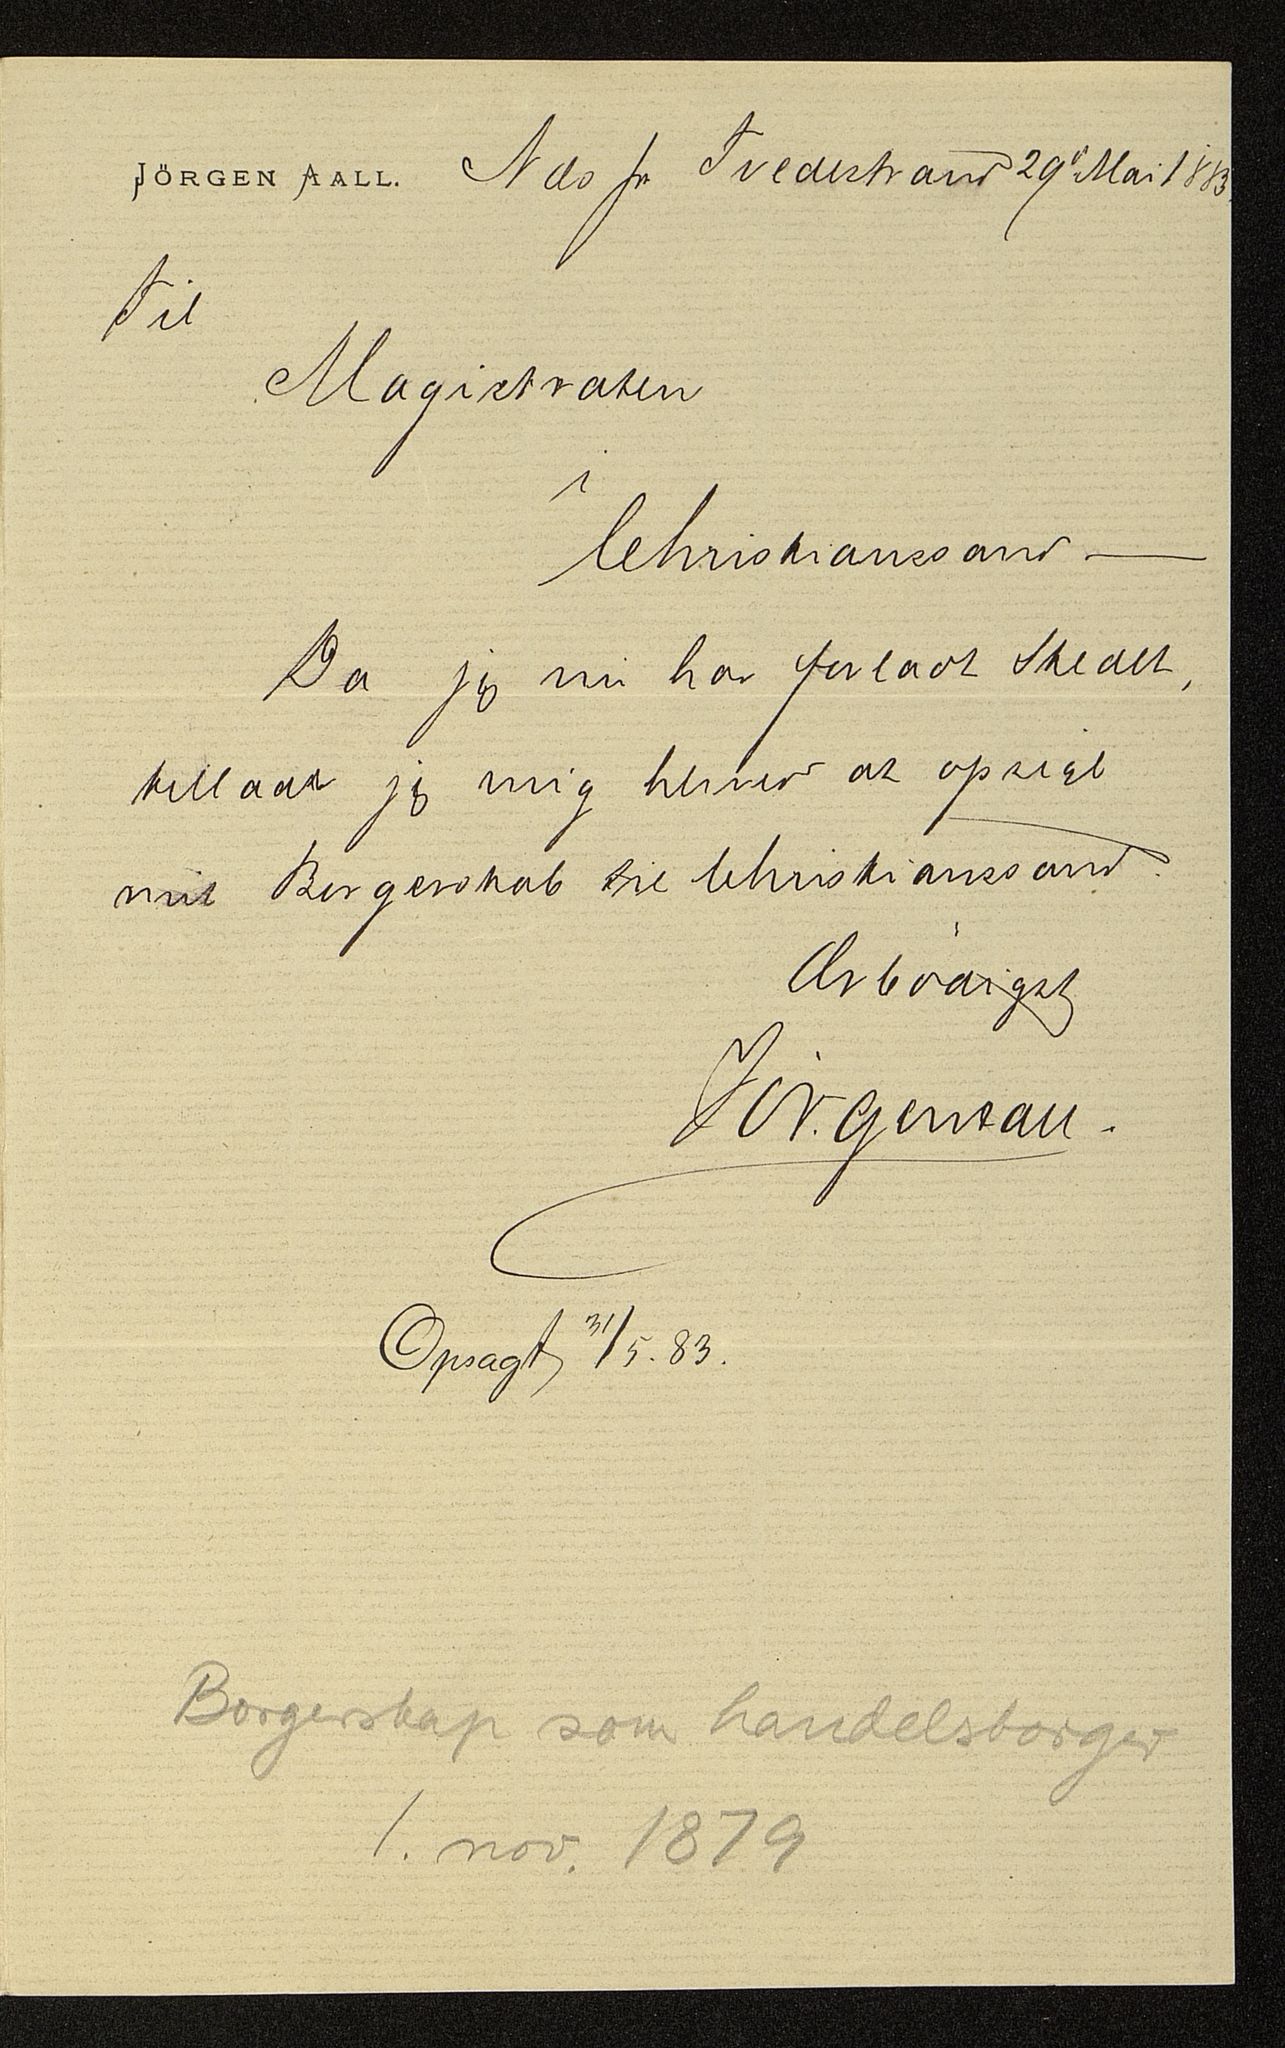 JÖRGEN AALL. Næs pr Tvedestrand 29d Mai 1883.
Til
Magistraten
i
Christianssand —
Da jeg nu har forladt Stedet,
tillader jeg mig herved at opsige
mit Borgerskab til Christianssand.
Ærbödigst
Jörgen Aall.
Opsagt 31/5. 83.
Borgerskap som handelsborger
1. nov. 1879